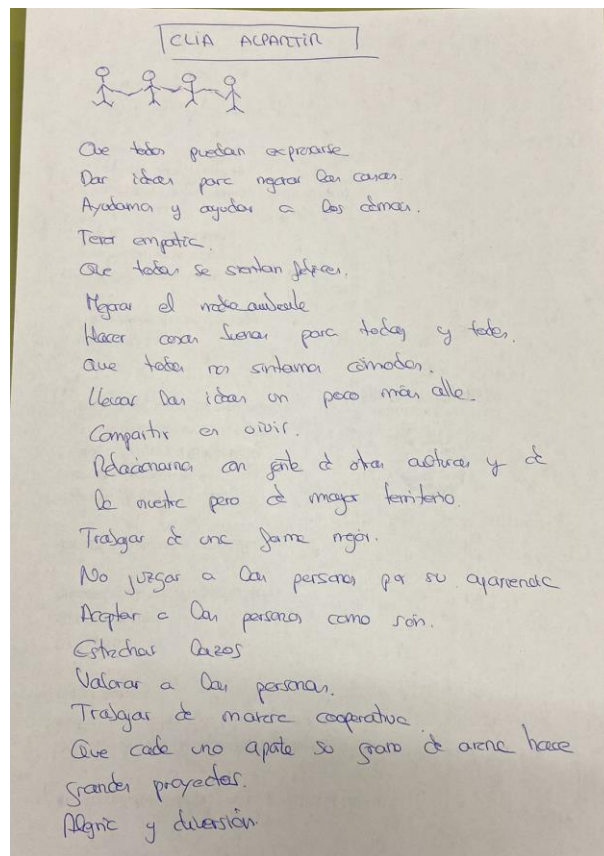 CLIA ALPARTIR
Que todos puedan expresarse
Dar ideas para mejorar las cosas.
Ayudarnos y ayudar a los demás.
Tener empatía.
Que todos se sientan felices.
Mejorar el medio ambiente
Hacer cosas buenas para todas y todos.
Que todos nos sintamos cómodos.
Llevar las ideas un poco más allá.
Compartir es vivir.
Relacionarnos con gente de otras culturas y de
la nuestra pero de mayor territorio.
Trabajar de una forma mejor.
No juzgar a las personas por su apariencia
Aceptar a las personas como son.
Estrechar lazos
Valorar a las personas.
Trabajar de manera cooperativa.
Que cada uno aporte su grano de arena hace
grandes proyectos.
Alegría y diversión.